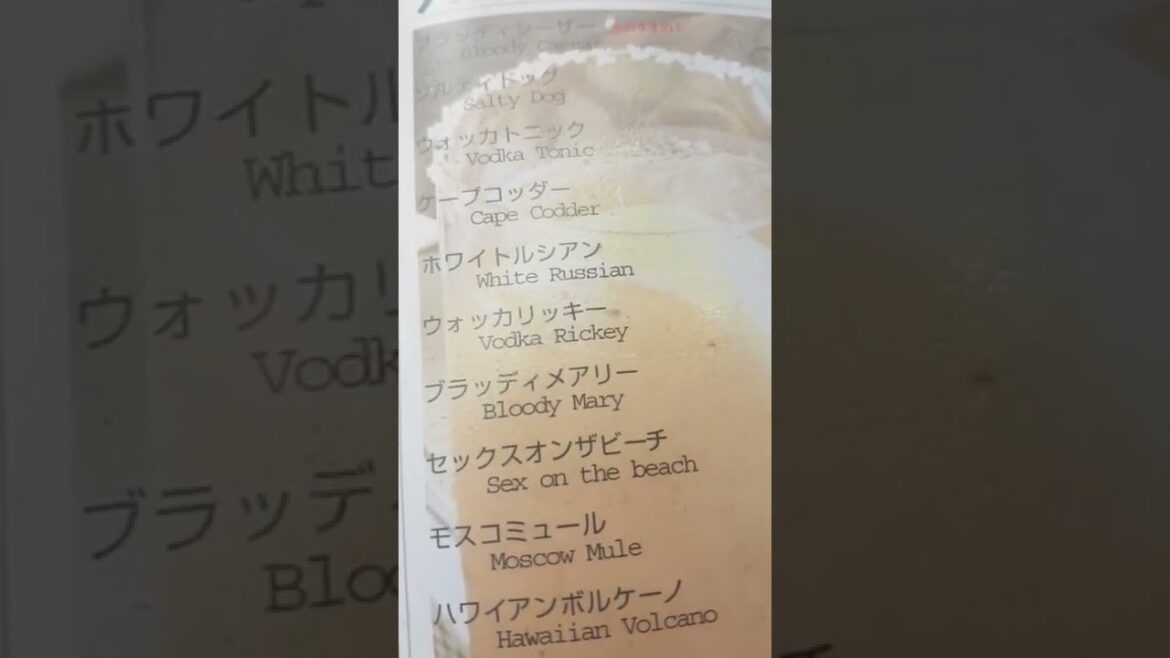 ブラッディシーザー
Bloody Caesar
ソルティドッグ
Salty Dog
ウォッカトニック
Vodka Tonic
ケープコッダー
Cape Codder
ホワイトルシアン
White Russian
ウォッカリッキー
Vodka Rickey
ブラッディメアリー
Bloody Mary
セックスオンザビーチ
Sex on the beach
モスコミュール
Moscow Mule
ハワイアンボルケーノ
Hawaiian Volcano